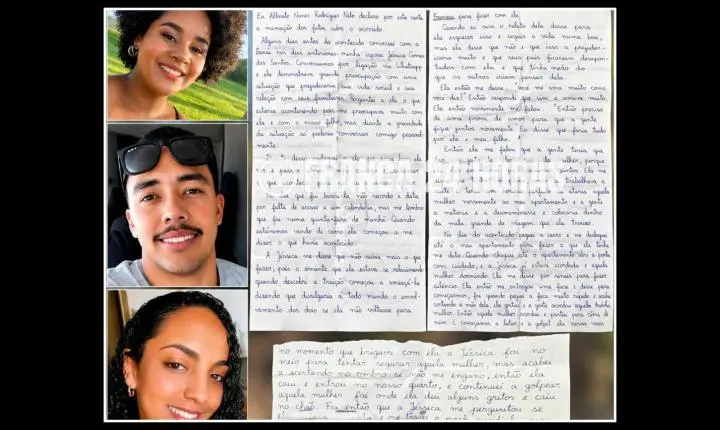 Eu Albnote Nunes Rodrigues Neto declaro por esta carta
a manação dos fatos sobre o ocorrido.
Alguns dias antes do acontecido conversei com a
nos dias anteriores minha esposa Jéssica Gomes
dos Santos. Conversamos por ligação via Whatsapp
e ela demonstrava grande preocupação com uma
situação que prejudicaria sua vida social e sua
relação com seus familiares. Perguntei a ela o que
estaria acontecendo pois me preocupava muito com
ela e com o nosso filho, mas diante a gravidade
da situação só poderia conversar comigo pessoal-
mente.
que fui buscá-la não recordo a data
por falta de acesso a um calendário, mas me lembro
que foi numa quinta-feira de manhã. Quando
estávamos vindo de carro ela começou a me
dizer o que havia acontecido.
A Jéssica me disse que não sabia mais o que
fazer, pois o amante que ela estava se relacionando
quando descobri a traição começou a ameaçá-la
dizendo que divulgaria a todo mundo o envol-
vimento dos dois se ela não voltasse para
para ficar com ele.
Quando eu ouvi o relato dela disse para
ela esquecer isso e seguir a vida numa boa,
mas ela disse que não e que isso a prejudi-
caria muito e que seus pais ficariam desapon-
tados com ela e que tinha medo do
que os outros iriam pensar dela.
Ela então me disse: "Você me ama muito como
você diz?" Então respondi que sim a amava muito.
Ela então novamente me falou: "Então preciso
de uma prova de amor para que a gente
fique juntos novamente. Eu disse que faria tudo
por ela e meu filho.
Então ela me falou que a gente teria que
mulher, porque
juntos. Ela me
trabalhava a
ataria aquela
mulher novamente ao meu apartamento e a gente
a mataria e a desmembrasse e colocaria dentro
da mala grande de viagem que ela trouxe.
No dia do acontecido peguei o carro e me desloquei
até o meu apartamento para fazer o que ela tinha
me dito. Quando cheguei até o apartamento abri a porta
com cuidado, e a Jéssica já estava acordada e aquela
mulher dormindo. Ela me disse por sinais para fazer
silêncio. Ela então me entregou uma faca e disse para
começarmos, foi quando peguei a faca muito rápido e acabei
cortando a mão dela, ela gritou e a gente acordou aquela maldita
mulher. Então aquela mulher acordou e partiu para cima de
mim. E começamos a lutar e a golpeei ela várias vezes
no momento que brigava com ela a Jéssica foi no
meio para tentar segurar aquela mulher, mas acabei
a acertando no ombro se não me engano, então ela
caiu e entrou no nosso quarto, e continuei a golpear
aquela mulher foi onde ela deu alguns gritos e caiu
no chão. Foi então que a Jéssica me perguntou se